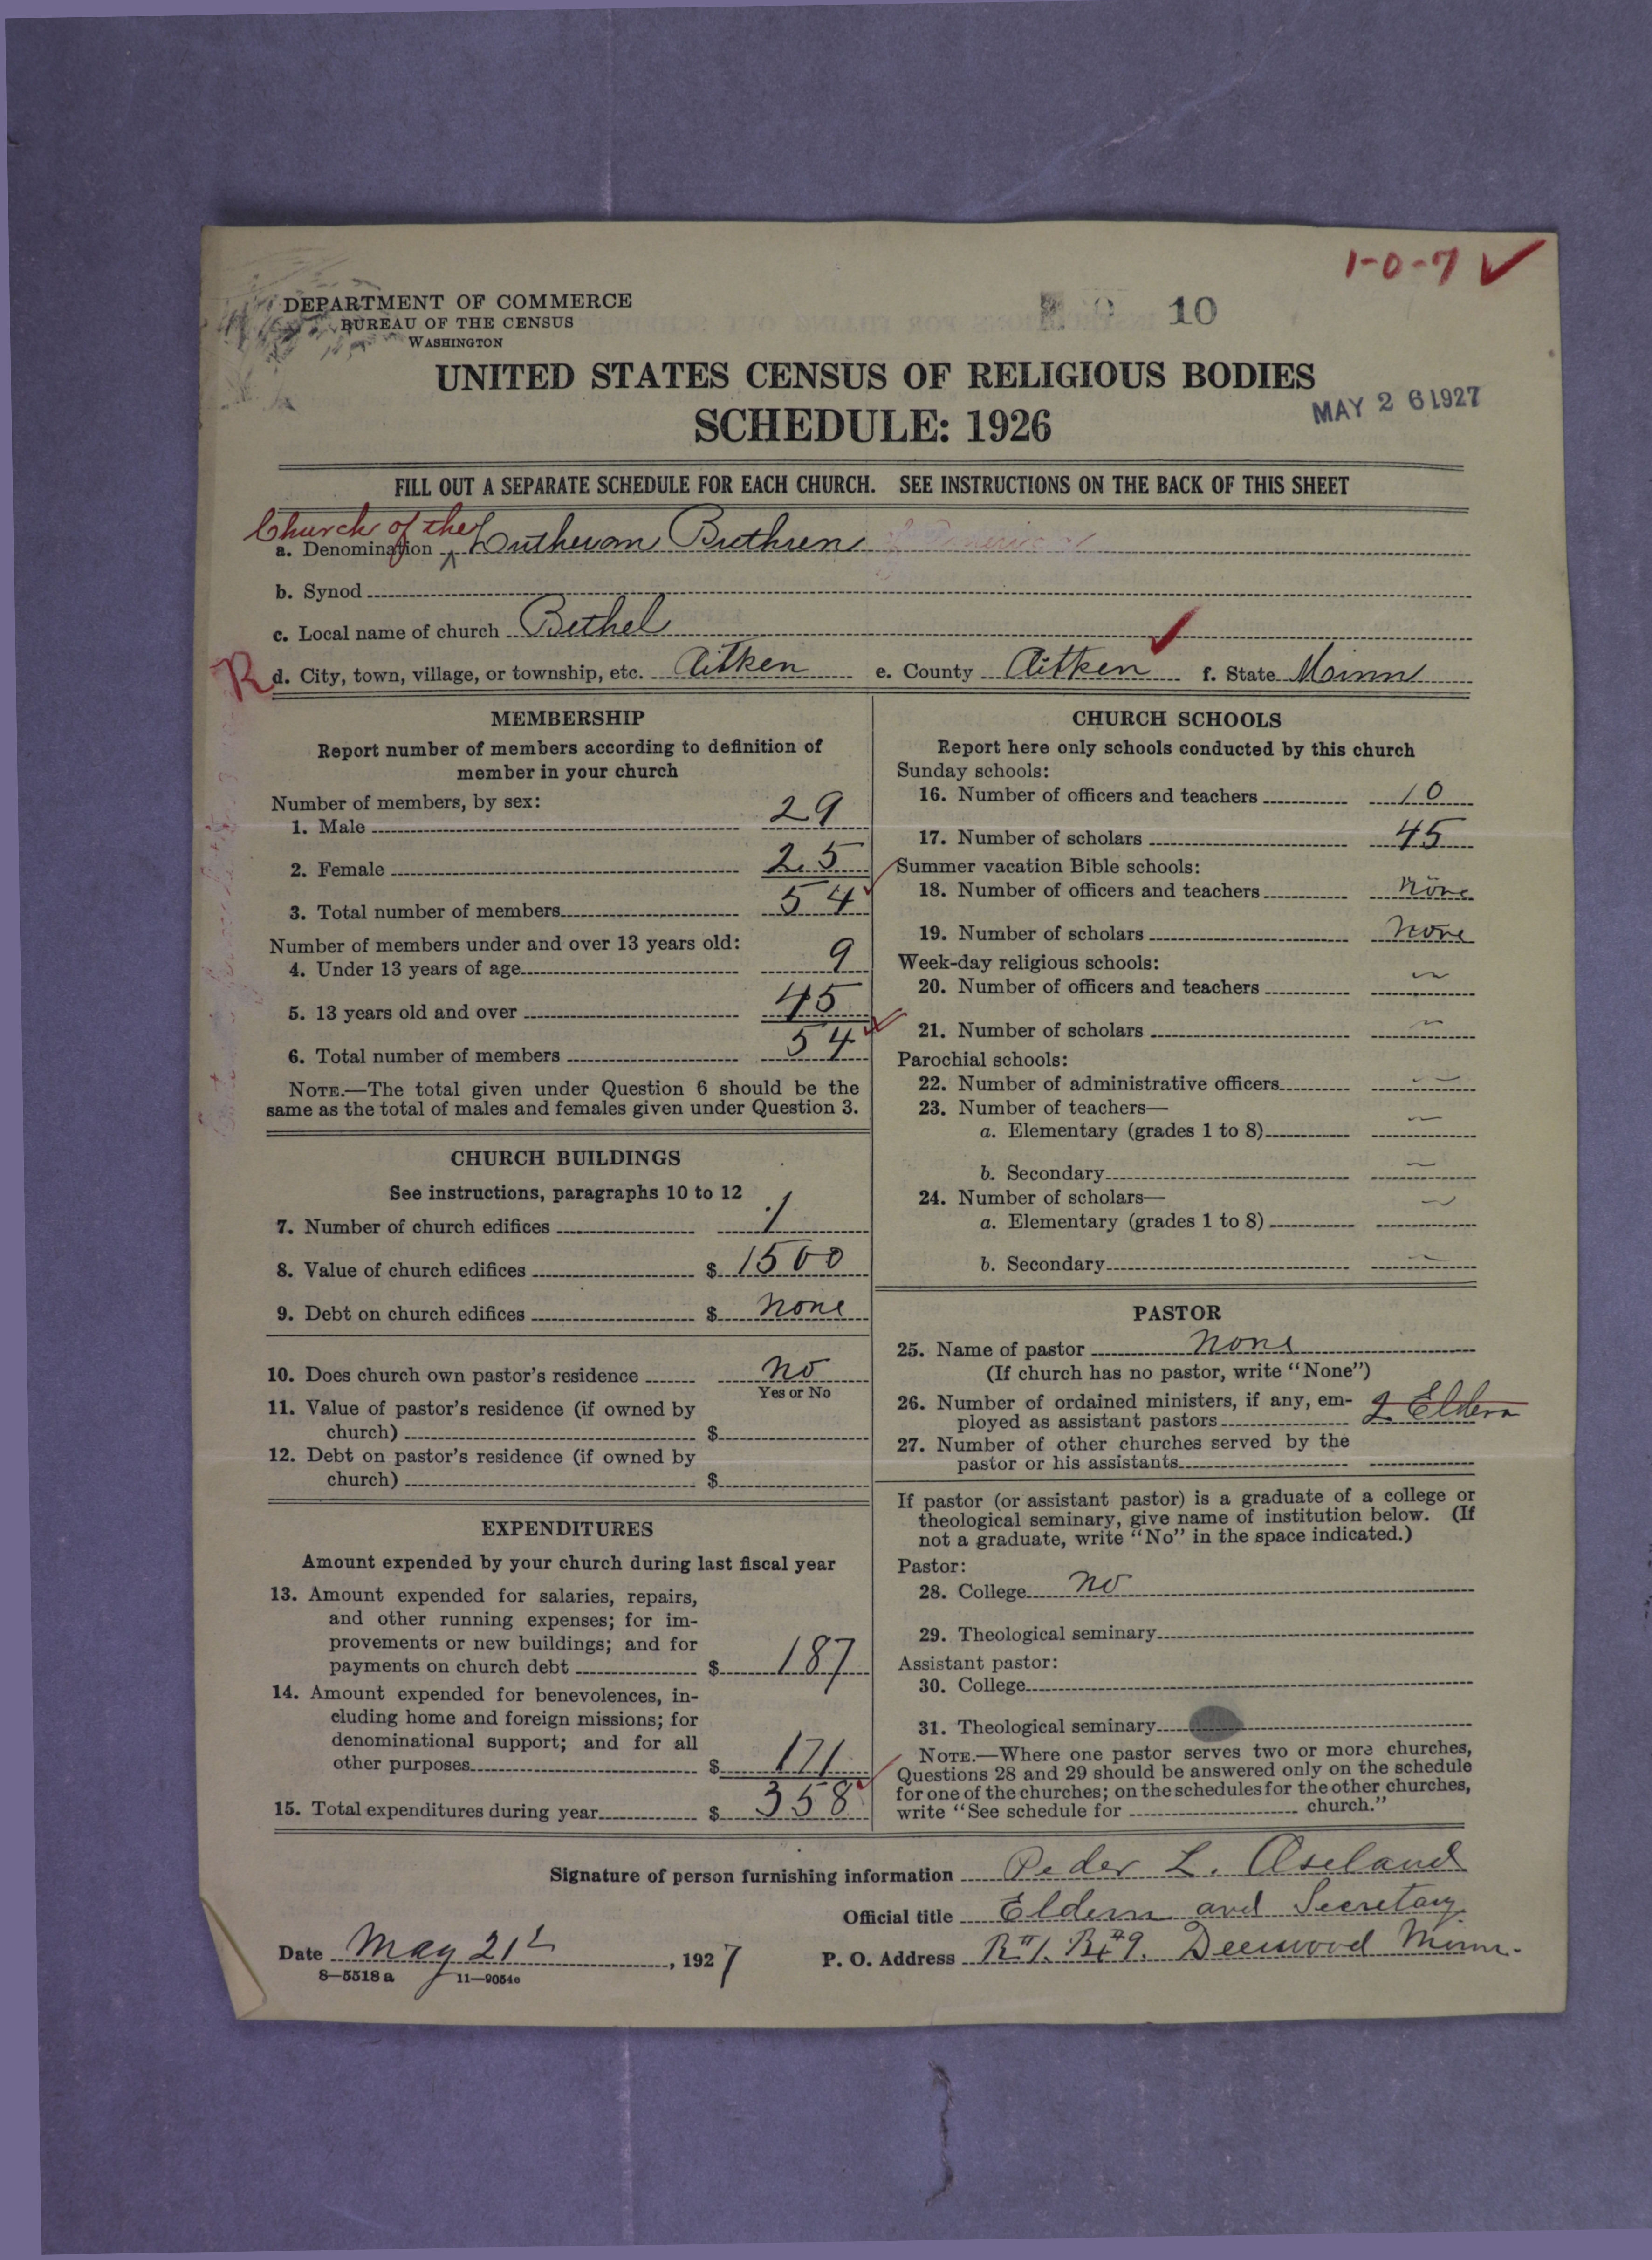 1-0-7 ✓
DEPARTMENT OF COMMERCE
BUREAU OF THE CENSUS
WASHINGTON
10
UNITED STATES CENSUS OF RELIGIOUS BODIES
SCHEDULE: 1926
MAY 26 1927
FILL OUT A SEPARATE SCHEDULE FOR EACH CHURCH. SEE INSTRUCTIONS ON THE BACK OF THIS SHEET
Church of the
a. Denomination Lutheran Brethren of America
b. Synod
c. Local name of church Bethel
R d. City, town, village, or township, etc. Aitken e. County Aitken f. State Minn
MEMBERSHIP
Report number of members according to definition of
member in your church
Number of members, by sex:
1. Male 29
2. Female 25
3. Total number of members 54
Number of members under and over 13 years old:
4. Under 13 years of age 9
5. 13 years old and over 45
6. Total number of members 54
NOTE.—The total given under Question 6 should be the
same as the total of males and females given under Question 3.
CHURCH BUILDINGS
See instructions, paragraphs 10 to 12
7. Number of church edifices 1
8. Value of church edifices $ 1500
9. Debt on church edifices $ none
10. Does church own pastor's residence no
Yes or No
11. Value of pastor's residence (if owned by
church) $
12. Debt on pastor's residence (if owned by
church) $
EXPENDITURES
Amount expended by your church during last fiscal year
13. Amount expended for salaries, repairs,
and other running expenses; for im-
provements or new buildings; and for
payments on church debt $ 187
14. Amount expended for benevolences, in-
cluding home and foreign missions; for
denominational support; and for all
other purposes $ 171
15. Total expenditures during year $ 358
CHURCH SCHOOLS
Report here only schools conducted by this church
Sunday schools:
16. Number of officers and teachers 10
17. Number of scholars 45
Summer vacation Bible schools:
18. Number of officers and teachers none
19. Number of scholars none
Week-day religious schools:
20. Number of officers and teachers —
21. Number of scholars —
Parochial schools:
22. Number of administrative officers —
23. Number of teachers—
a. Elementary (grades 1 to 8) —
b. Secondary —
24. Number of scholars—
a. Elementary (grades 1 to 8) —
b. Secondary —
PASTOR
25. Name of pastor none
(If church has no pastor, write "None")
26. Number of ordained ministers, if any, em-
ployed as assistant pastors 2 Eldern
27. Number of other churches served by the
pastor or his assistants
If pastor (or assistant pastor) is a graduate of a college or
theological seminary, give name of institution below. (If
not a graduate, write "No" in the space indicated.)
Pastor:
28. College no
29. Theological seminary
Assistant pastor:
30. College
31. Theological seminary
NOTE.—Where one pastor serves two or more churches,
Questions 28 and 29 should be answered only on the schedule
for one of the churches; on the schedules for the other churches,
write "See schedule for church."
Signature of person furnishing information Peder L. Aseland
Official title Eldern and Secretary
Date May 21st, 1927 P. O. Address R#1. Bx#9. Deerwood Minn.
8-5518 a 11-9054e